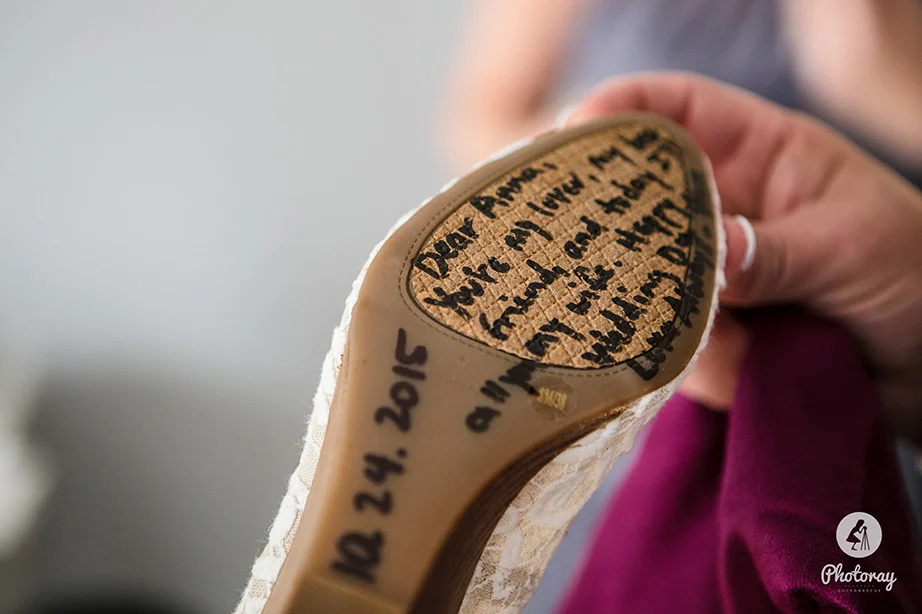 Dear Anna,
You're my lover, my best
friend, and today
my wife. Happy
Wedding Day
all my
10.24.2015
Photoray
PHOTOGRAPHY